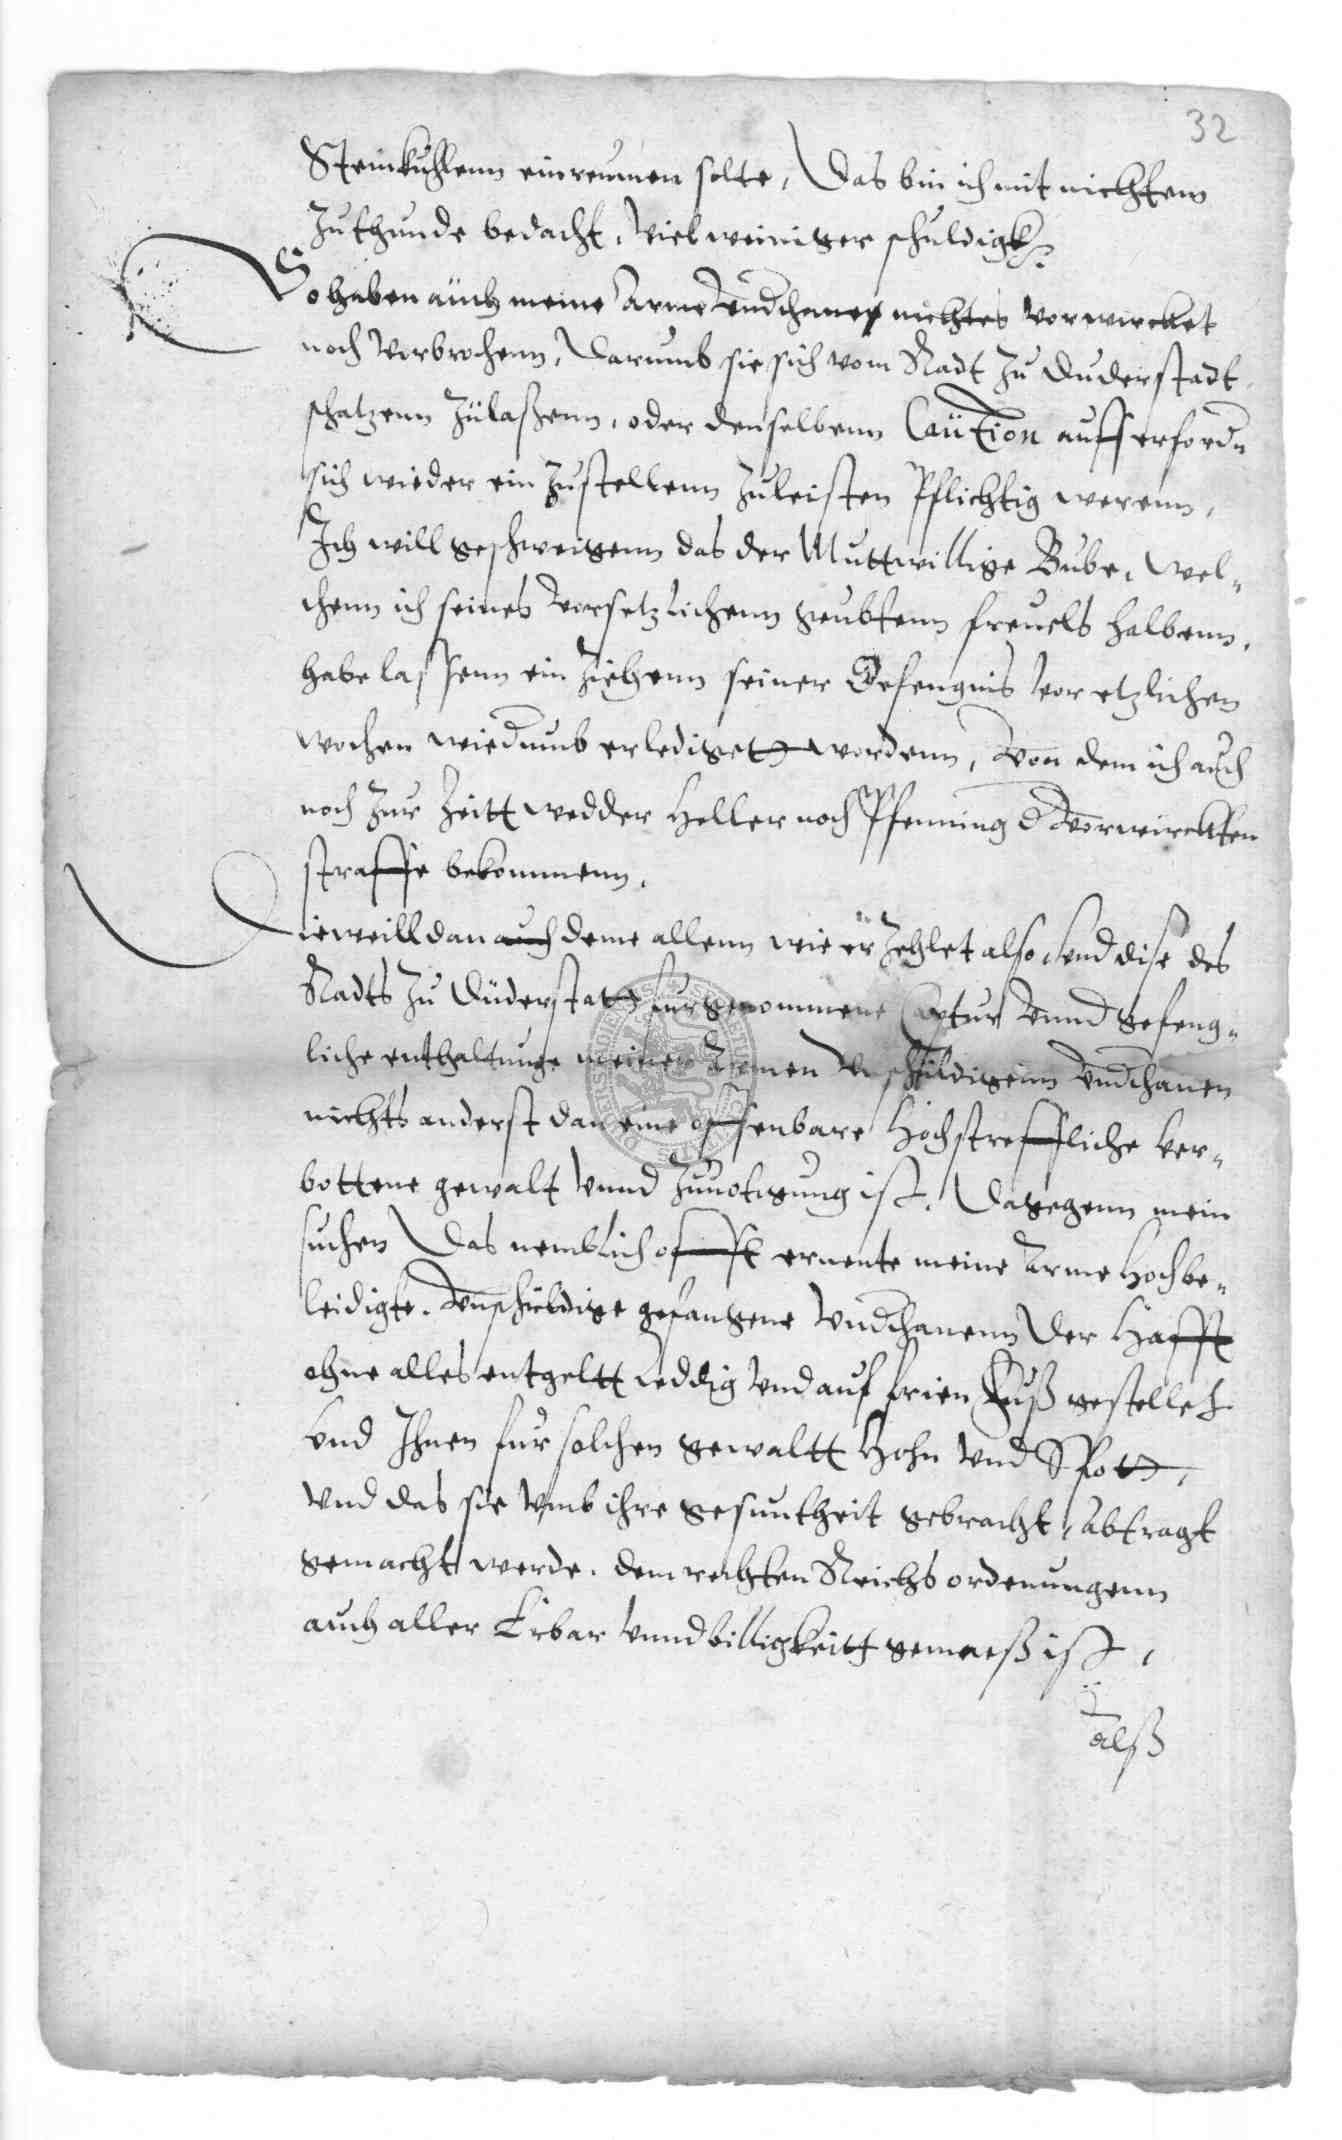 32
Steinkuhlenn einreumen solte, Das bin ich mit nichtenn
Zuthunde bedacht, Viel weiniger schuldigk,
So haben auch meine Arme Undthanen nichtes vorwircket
noch Vorbrochenn, Darumb sie sich vom Radt zu Duderstadt
schatzenn Zulaßenn, oder denselbenn Caution auff erfordn
sich wieder ein Zustellenn Zuleisten Pflichtig werenn,
Ich will geschweigenn das der Muttwillige Bube, wel-
chenn ich seines Vorsetzlichenn geubtenn freuels halbenn,
habe lassenn ein Ziehenn seiner Gefengnis Vor etzlichen
wochen wiedumb erlediget wordenn, Von dem ich auch
noch zur Zeitt wedder Heller noch Pfenning d Vorwirckten
straffe bekommenn,
Dieweill dan auch deme allenn wie er Zehlet also, Und dise des
Radts Zu Duderstatt furgenommene Captur Unnd gefeng-
liche enthaltunge meiner Armen Unschuldigenn Undthanen
nichts anderst dan eine offenbare Hochstreffliche Ver-
bottene gewalt Unnd Zunotigung ist, Dagegenn mein
suchen Das nemblich offt ernente meine Arme Hochbe-
leidigte, Unschuldige gefangene Undthanenn Der Hafft
ohne alles entgeltt Leddig Und auf frien Fuß gestellet
Und Ihnen fur solchen gewaltt Hohn Und Spott,
Und das sie Umb ihre gesuntheit gebracht, Abtragt
gemacht werde, dem rechten Reichs ordenungenn
auch aller Erbar Unnd billigkeitt gemeeß ist,
alß